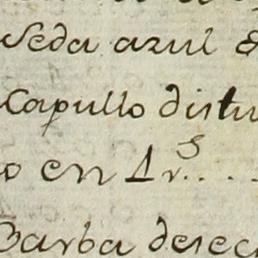 Seda azul
Capullo distu
o en 1 r.s....
Barba desec